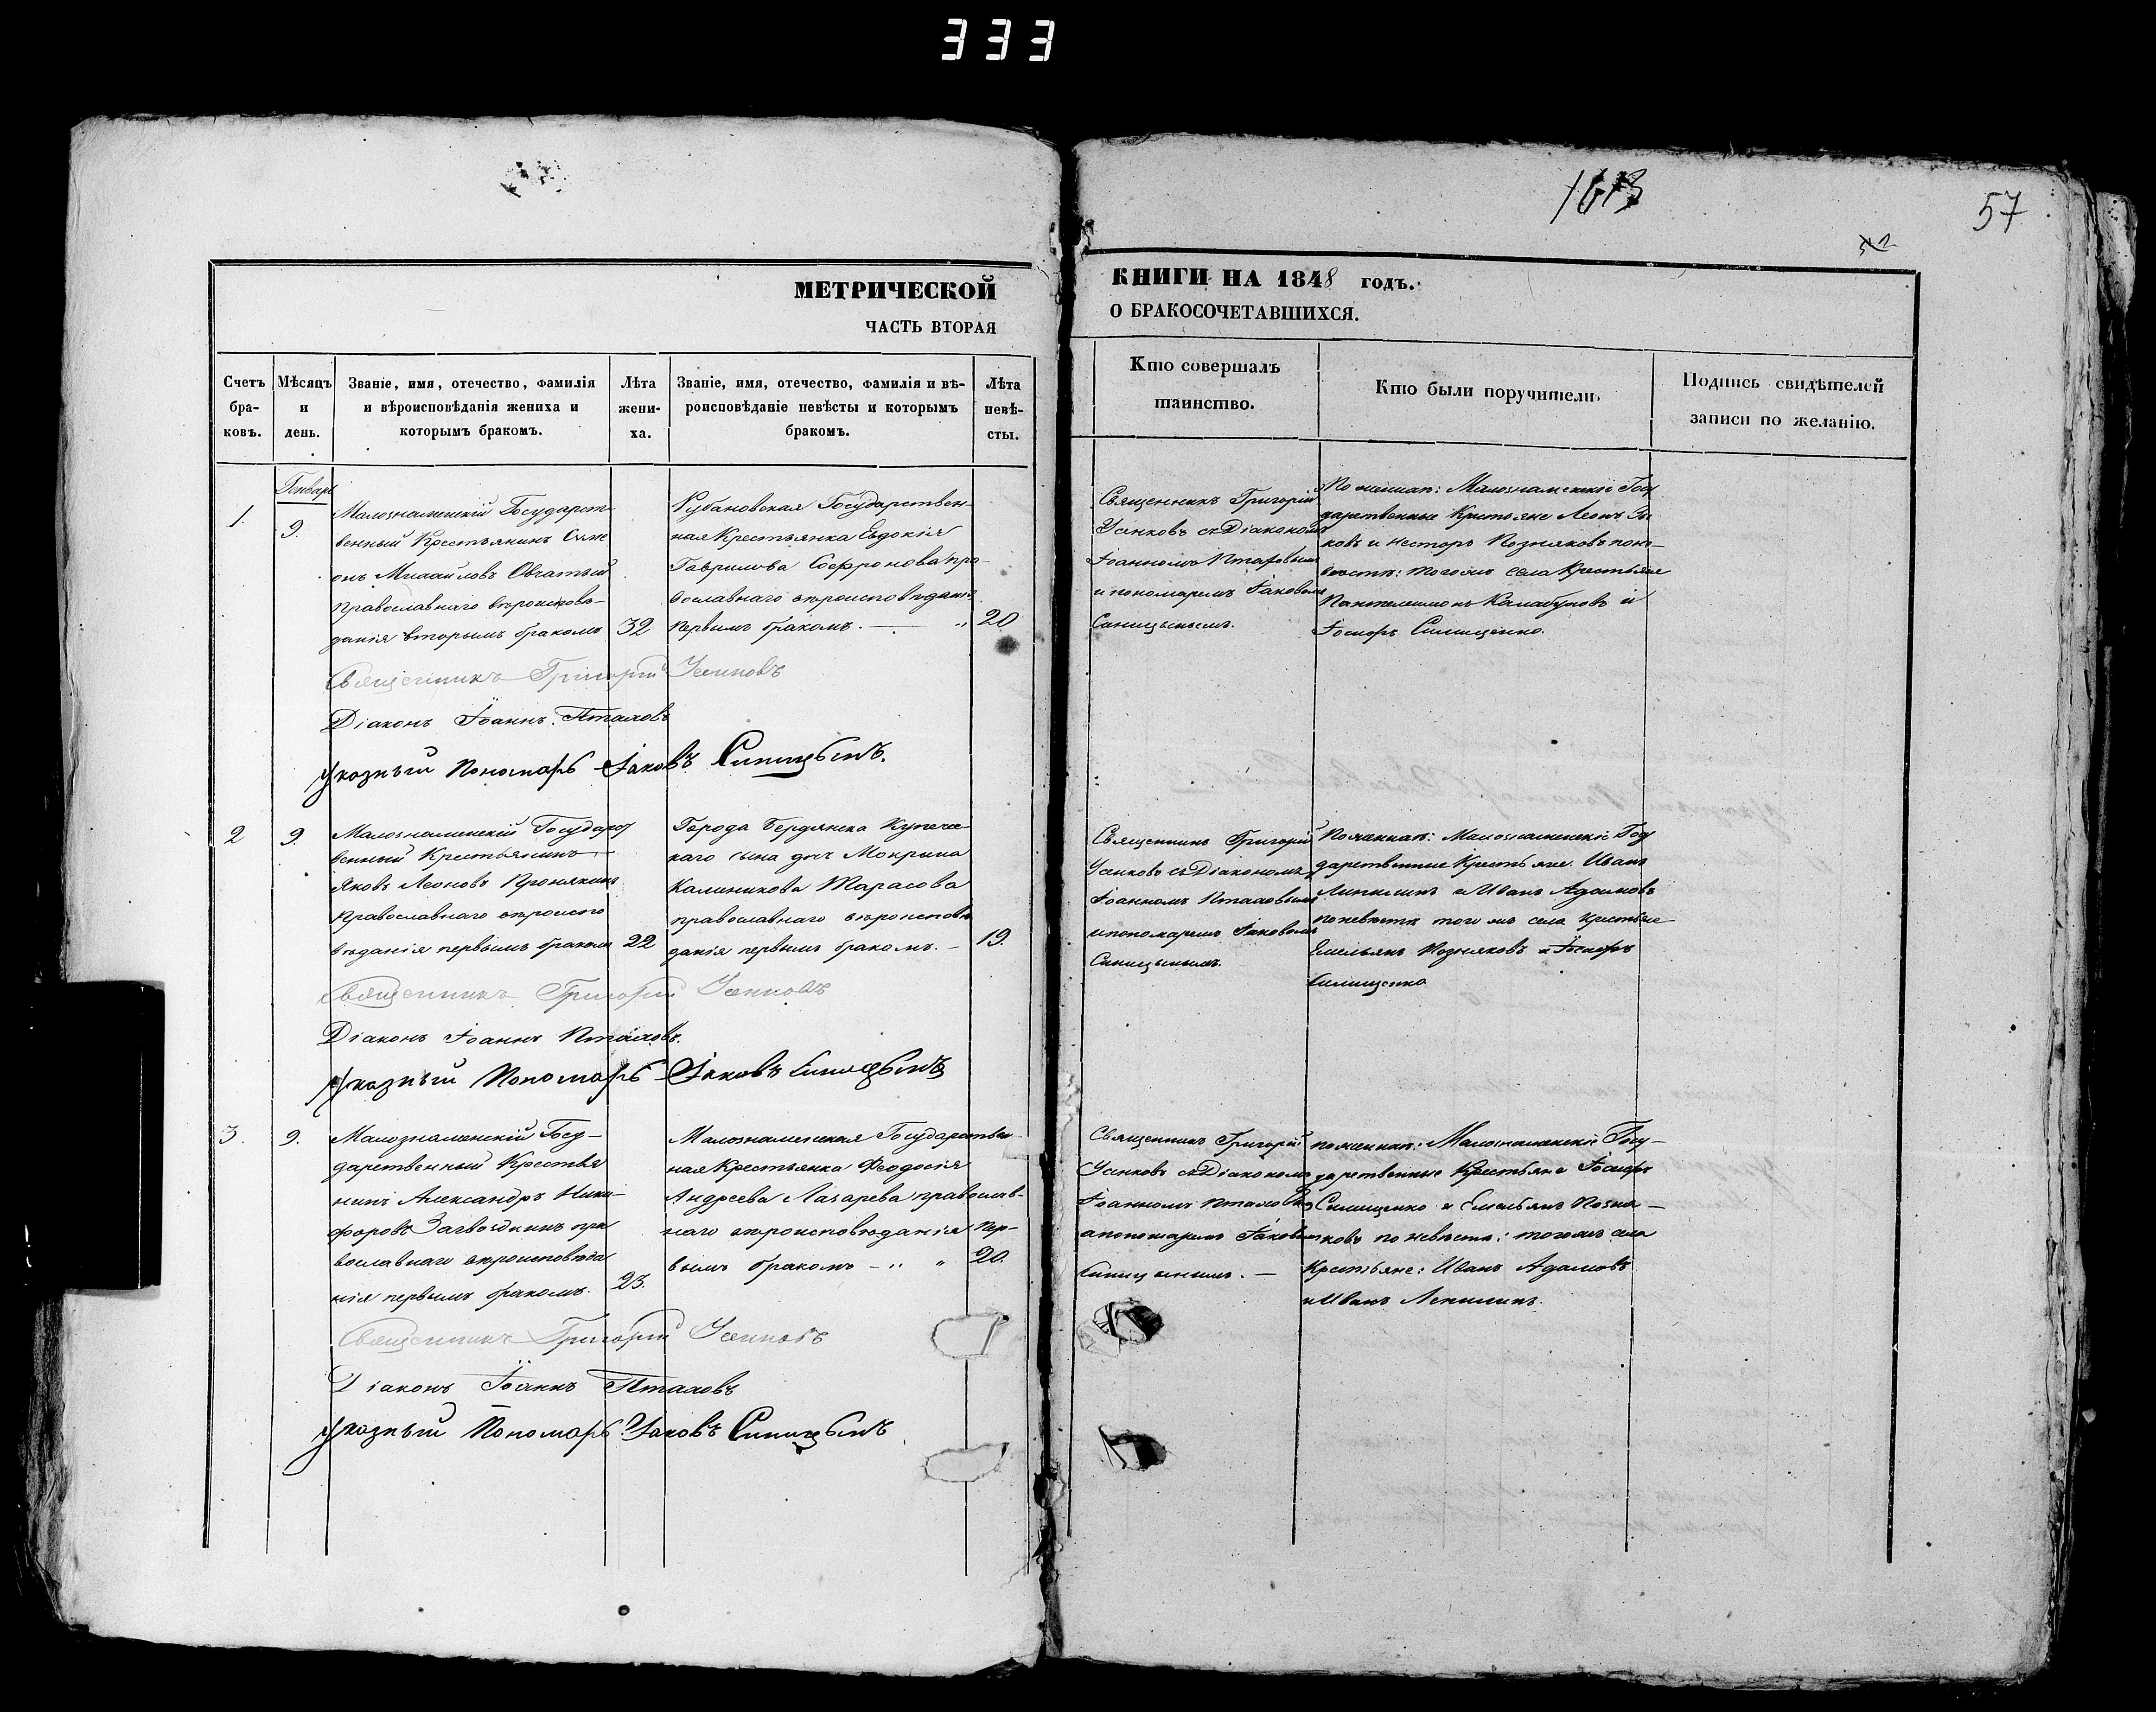 333
1613
57
52
МЕТРИЧЕСКОЙ
ЧАСТЬ ВТОРАЯ
Счетъ бра- ковъ.
Мѣсяцъ и день.
Званіе, имя, отечество, фамилія
и вѣроисповѣданія жениха и
которымъ бракомъ.
Лѣта жени- ха.
Званіе, имя, отечество, фамилія и вѣ-
роисповѣданіе невѣсты и которымъ
бракомъ.
Лѣта невѣ- сты.
КНИГИ НА 1848 годъ.
О БРАКОСОЧЕТАВШИХСЯ.
Кто совершалъ
таинство.
Кто были поручители
Подпись свидѣтелей
записи по желанію.
Генварь
1.
9.
Малознаменскій Государст-
венный Крестьянинъ Симе
онъ Михайловъ Овчатый
православнаго вѣроисповѣ-
данія вторымъ бракомъ
32
Рубановская Государствен-
ная Крестьянка Евдокія
Гаврилова Софронова пра-
вославнаго вѣроисповѣданія
первымъ бракомъ. — "
20
Священникъ Григорій
Усенковъ съ Діакономъ
Іоанномъ Пталовымъ
и пономаремъ Іаковомъ
Синицынымъ.
По женихѣ: Малознаменскіе Госу
дарственные Крестьяне Леонъ
ковъ и Несторъ Позняковъ по не-
вѣстѣ: того же села Крестьяне
и
Іосифъ Силищенко.
Священникъ Григорій Усенковъ
Діаконъ Іоаннъ Пталовъ
Указный Пономарь Іаковъ Синицынъ.
2
9.
Малознаменскій Государст
венный Крестьянинъ
Яковъ Леоновъ Пронякинъ
православнаго вѣроиспо
вѣданія первымъ бракомъ
22
Города Бердянска Купечес
каго сына дочь Мокрина
Калиникова Тарасова
православнаго вѣроисповѣ
данія первымъ бракомъ. —
19.
Священникъ Григорій
Усенковъ съ Діакономъ
Іоанномъ Пталовымъ
и пономаремъ Іаковомъ
Синицынымъ.
По женихѣ: Малознаменскіе Госу
дарственные Крестьяне: Иванъ
и Иванъ Адамовъ
по невѣстѣ того же села Крестьяне
Емельянъ Позняковъ и Іосифъ
Силищенко
Священникъ Григорій Усенковъ
Діаконъ Іоаннъ Пталовъ.
Указный Пономарь Іаковъ Синицынъ
3.
9.
Малознаменскій Госу-
дарственный Крестья
нинъ Александръ Ники-
форовъ пра
вославнаго вѣроисповѣда
нія первымъ бракомъ.
23.
Малознаменская Государствен-
ная Крестьянка Феодосія
Андреева Лазарева православ-
наго вѣроисповѣданія пер-
вымъ бракомъ — " "
20.
Священникъ Григорій
Усенковъ съ Діакономъ
Іоанномъ Пталовымъ
и пономаремъ Іаковомъ
Синицынымъ. —
по женихѣ: Малознаменскіе Госу-
дарственные Крестьяне Іосифъ
Силищенко и Емельянъ Позня-
ковъ по невѣстѣ: того же села
Крестьяне: Иванъ Адамовъ
и Иванъ
Священникъ Григорій Усенковъ
Діаконъ Іоаннъ Пталовъ
Указный Пономарь Іаковъ Синицынъ